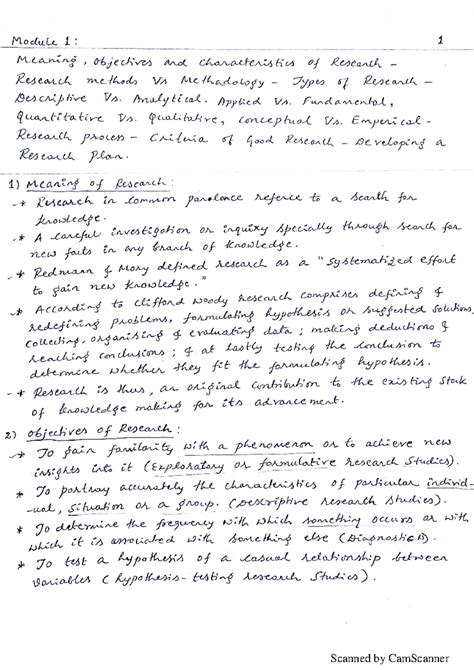 Module 1: 1
Meaning, objectives and characteristics of Research -
Research methods Vs Methodology - Types of Research -
Descriptive Vs. Analytical. Applied Vs. Fundamental,
Quantitative Vs. Qualitative, Conceptual Vs. Emperical -
Research process - Criteria of Good Research - Developing a
Research Plan.
1) Meaning of Research:
-* Research in common parolance referce to a search for
knowledge.
-* A careful investigation or inquiry specially through search for
new facts in any branch of knowledge.
-* Redmann & Mory defined research as a "systematized effort
to gain new knowledge."
* According to Clifford Woody research comprises defining &
redefining problems, formulating hypothesis or suggested solutions,
collecting, organising & evaluating data; making deductions &
reaching conclusions; & at lastly testing the conclusion to
determine whether they fit the formulating hypothesis.
-* Research is thus, an original contribution to the existing stock
of knowledge making for its advancement.
2) Objectives of Research:
-* To gain familarity with a phenomenon or to achieve new
insights into it (Exploratory or formulative research Studies).
* To portray accurately the characteristics of particular individ-
-ual, Situation or a group. (Descriptive research studies).
* To determine the frequency with which something occurs or with
which it is associated with something else (Diagnostic).
* To test a hypothesis of a casual relationship between
variables (hypothesis-testing research Studies).
Scanned by CamScanner